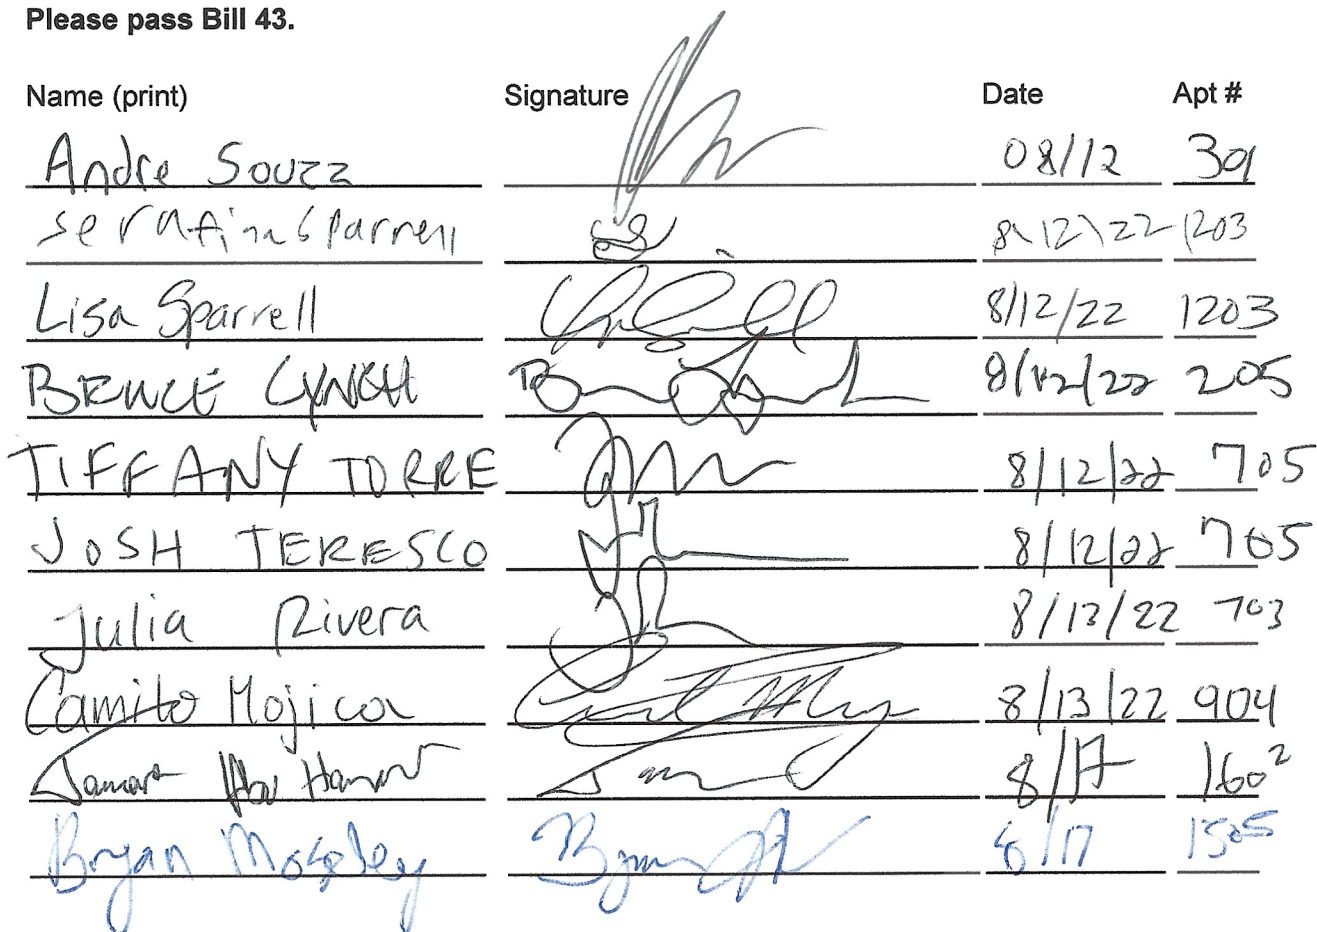 Please pass Bill 43.
Name (print) Signature Date Apt #
Andre Souza 08/12 301
Serafina Sparrell 8\12\22 1203
Lisa Sparrell 8/12/22 1203
BRUCE LYNCH 8/12/22 205
TIFFANY TORRE 8/12/22 705
JOSH TERESCO 8/12/22 705
Julia Rivera 8/12/22 703
Camilo Mojica 8/13/22 904
8/17 1602
Bryan Moseley 8/17 1505